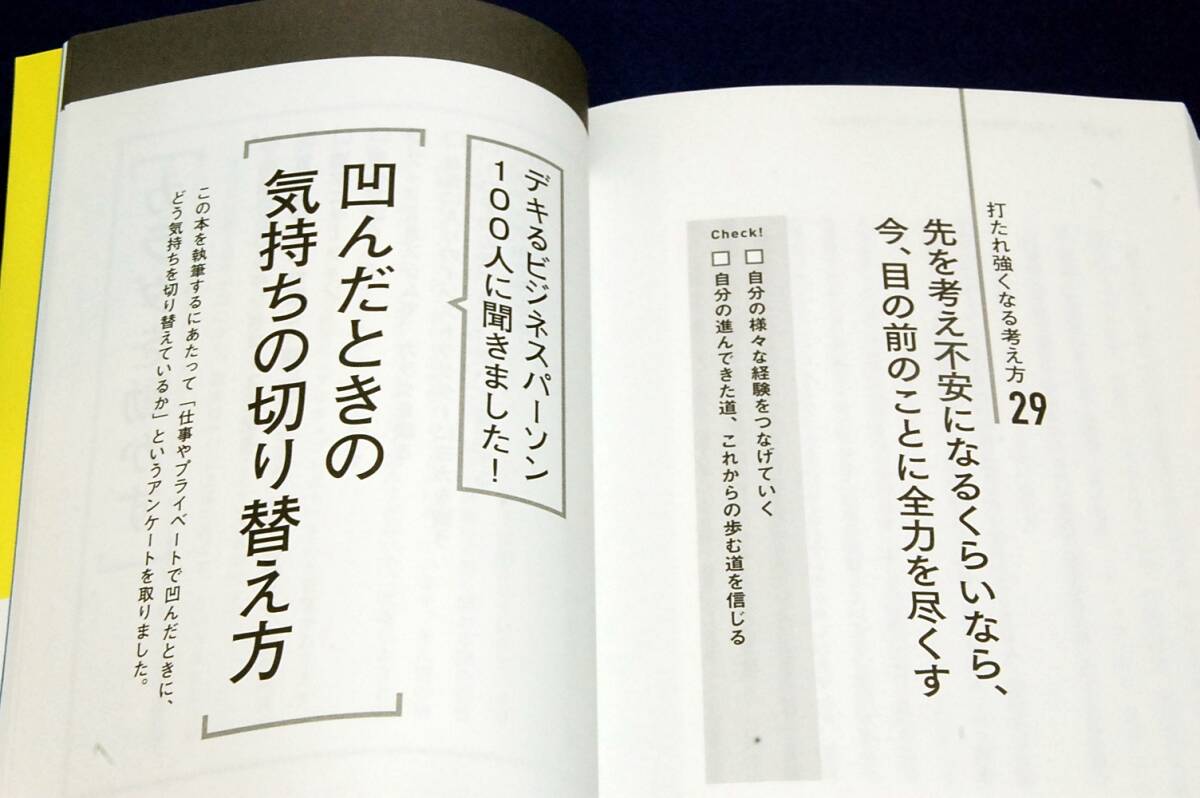 打たれ強くなる考え方
29
先を考え不安になるくらいなら、
今、目の前のことに全力を尽くす
Check!
□自分の様々な経験をつなげていく
□自分の進んできた道、これからの歩む道を信じる
デキるビジネスパーソン
100人に聞きました!
凹んだときの
気持ちの切り替え方
この本を執筆するにあたって「仕事やプライベートで凹んだときに、
どう気持ちを切り替えているか」というアンケートを取りました。